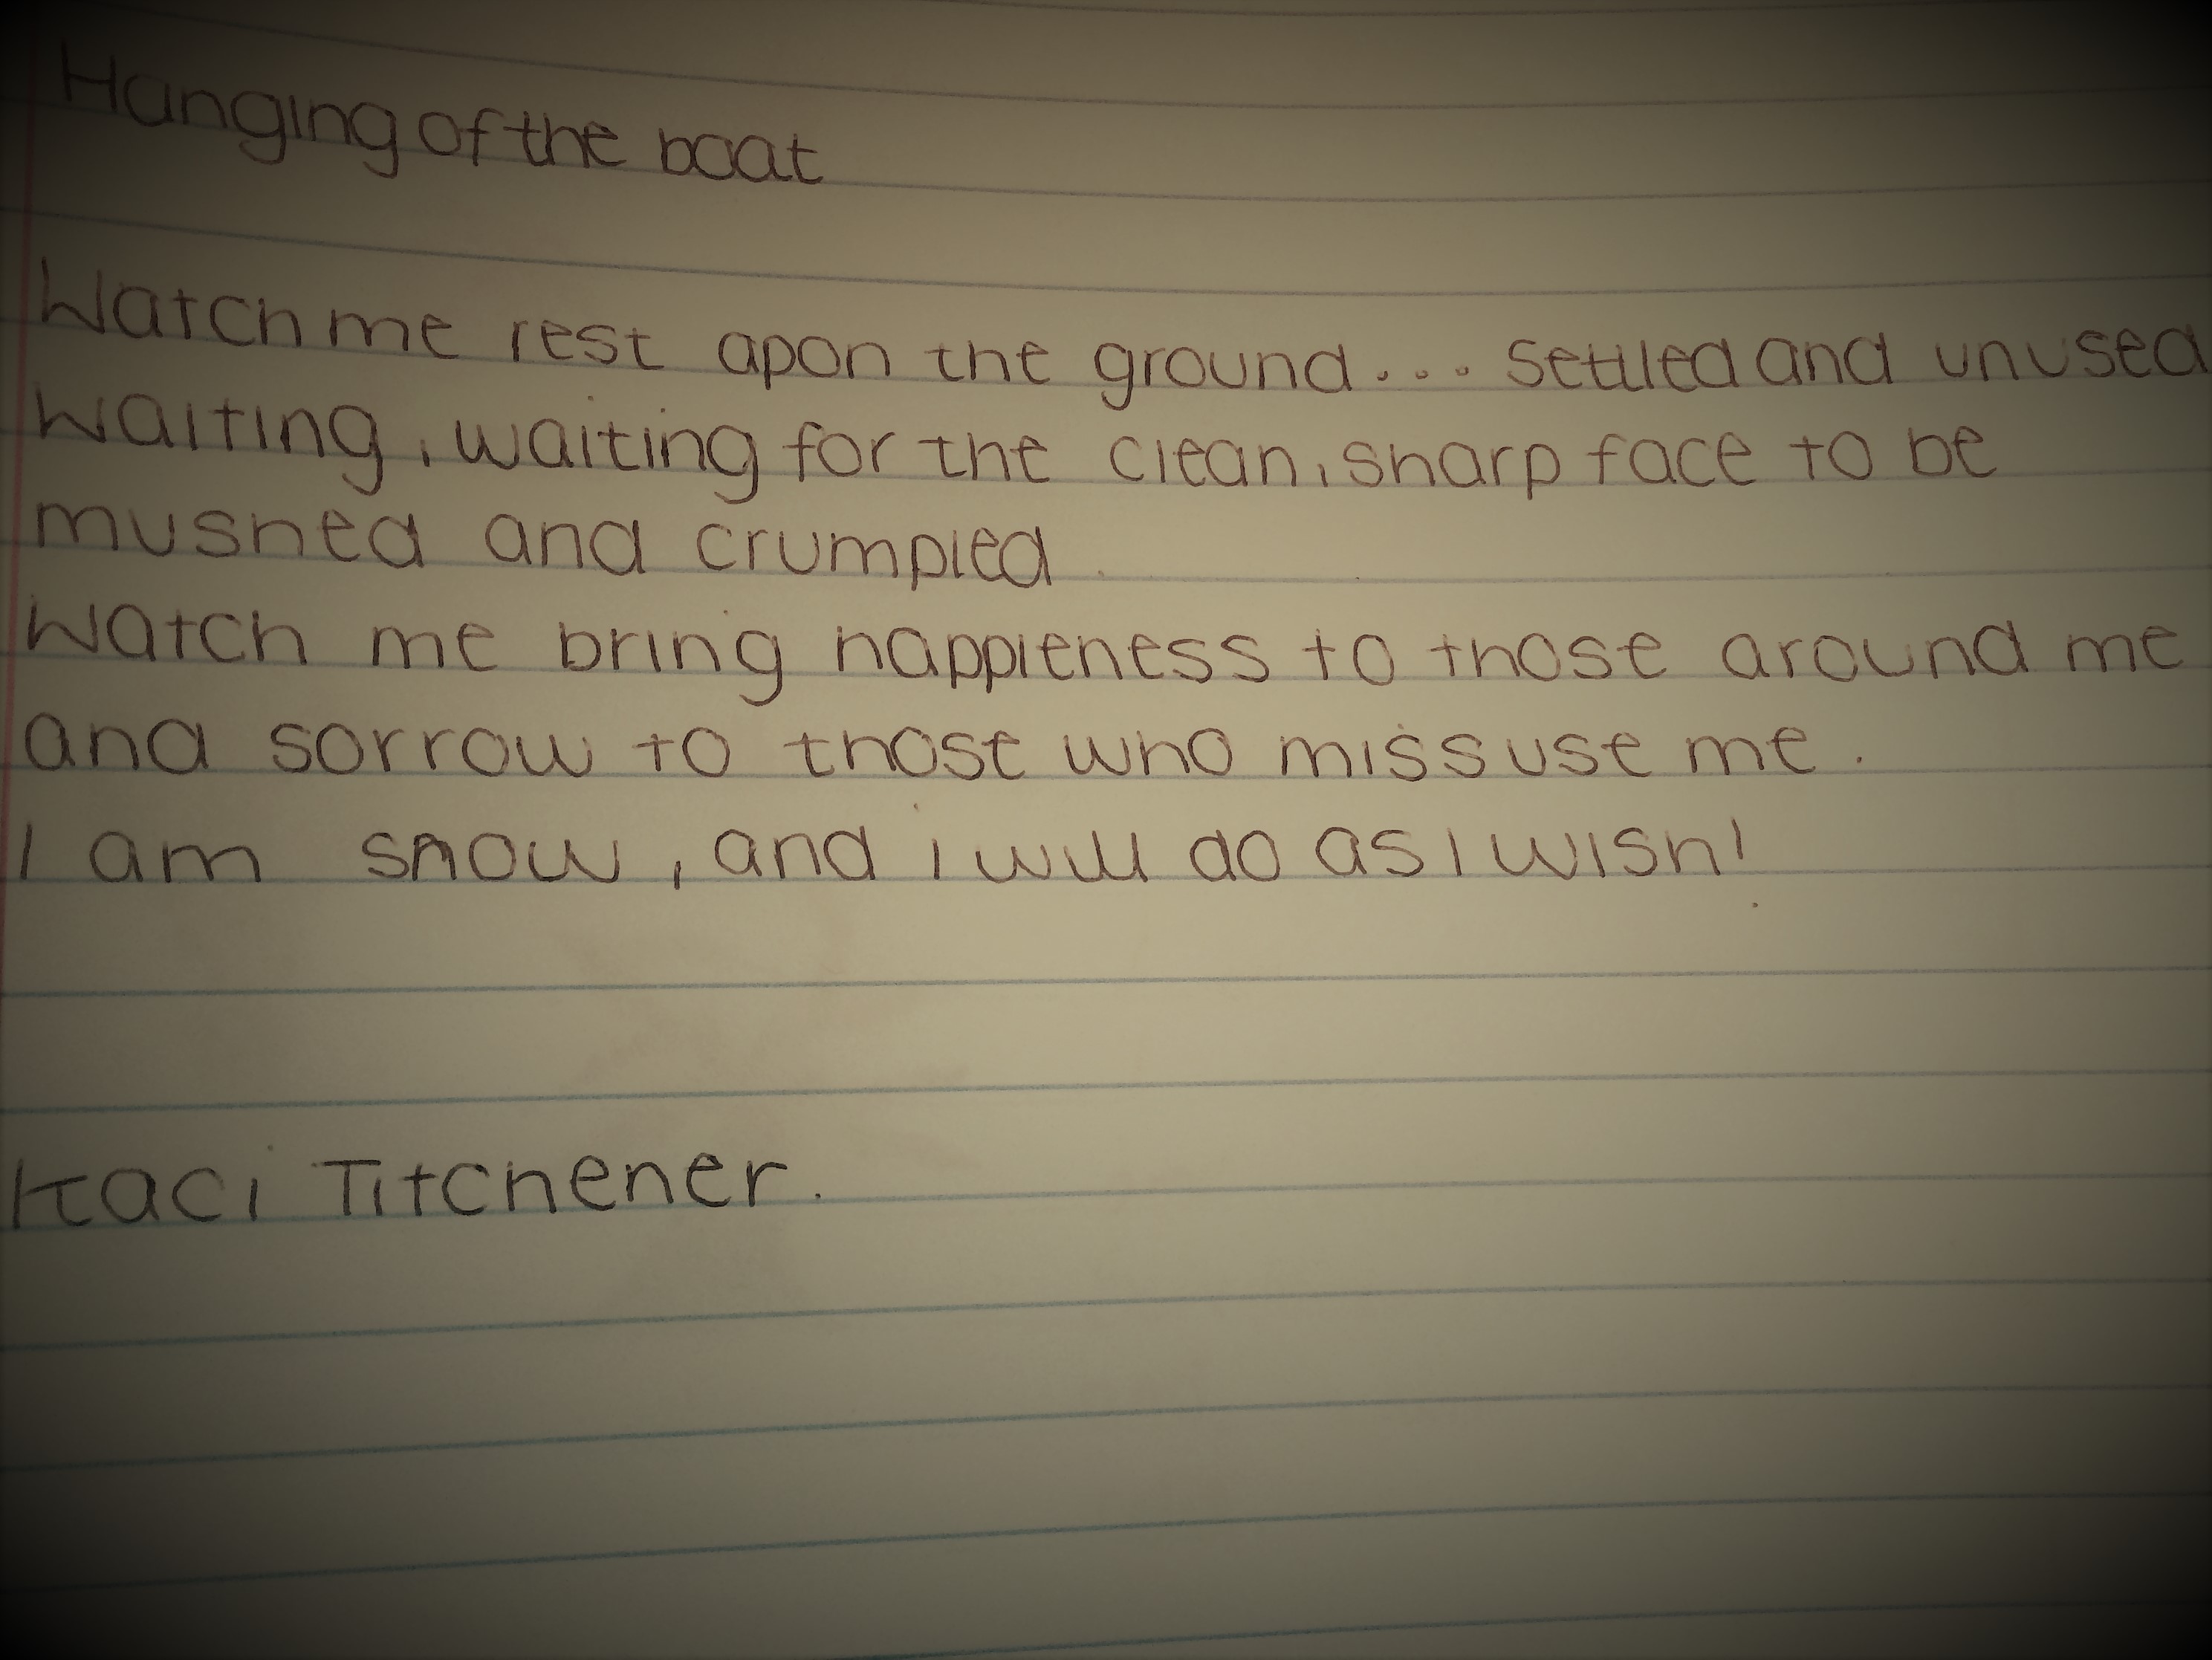 Hanging of the boat
Watch me rest apon the ground... settled and unused
Waiting, waiting for the clean, sharp face to be
mushed and crumpled.
Watch me bring happieness to those around me
and sorrow to those who missuse me.
I am snow, and i will do as I wish!
Kaci Titchener.